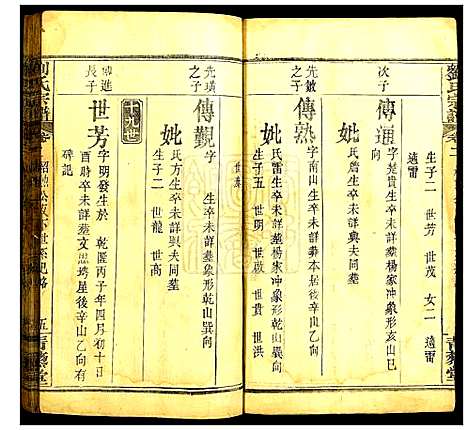 劉氏宗譜
生子二 世芳 世茂 女二 遠雷
遠雷
次子
傳通
字楚貴生卒未詳墓楊家冲象形亥山巳
向
妣
氏詹生卒未詳與夫同墓
先敏
次子
傳熟
字南山生卒未詳墓本居後
妣
氏雷生卒未詳墓楊家冲象形乾山巽向
生子五 世明 世啟 世貴 世洪
世
先璜
次子
傳觀
字 生卒未詳墓象形乾山巽向
妣
氏方生卒未詳與夫同墓
生子二 世龍 世高
十九世
進
長子
世芳
字明發生於 乾隆丙子年四月初十日
酉時卒未詳墓文思垮屋後辛山乙向有
碑記
劉氏宗譜
五
青藜堂
青藜堂